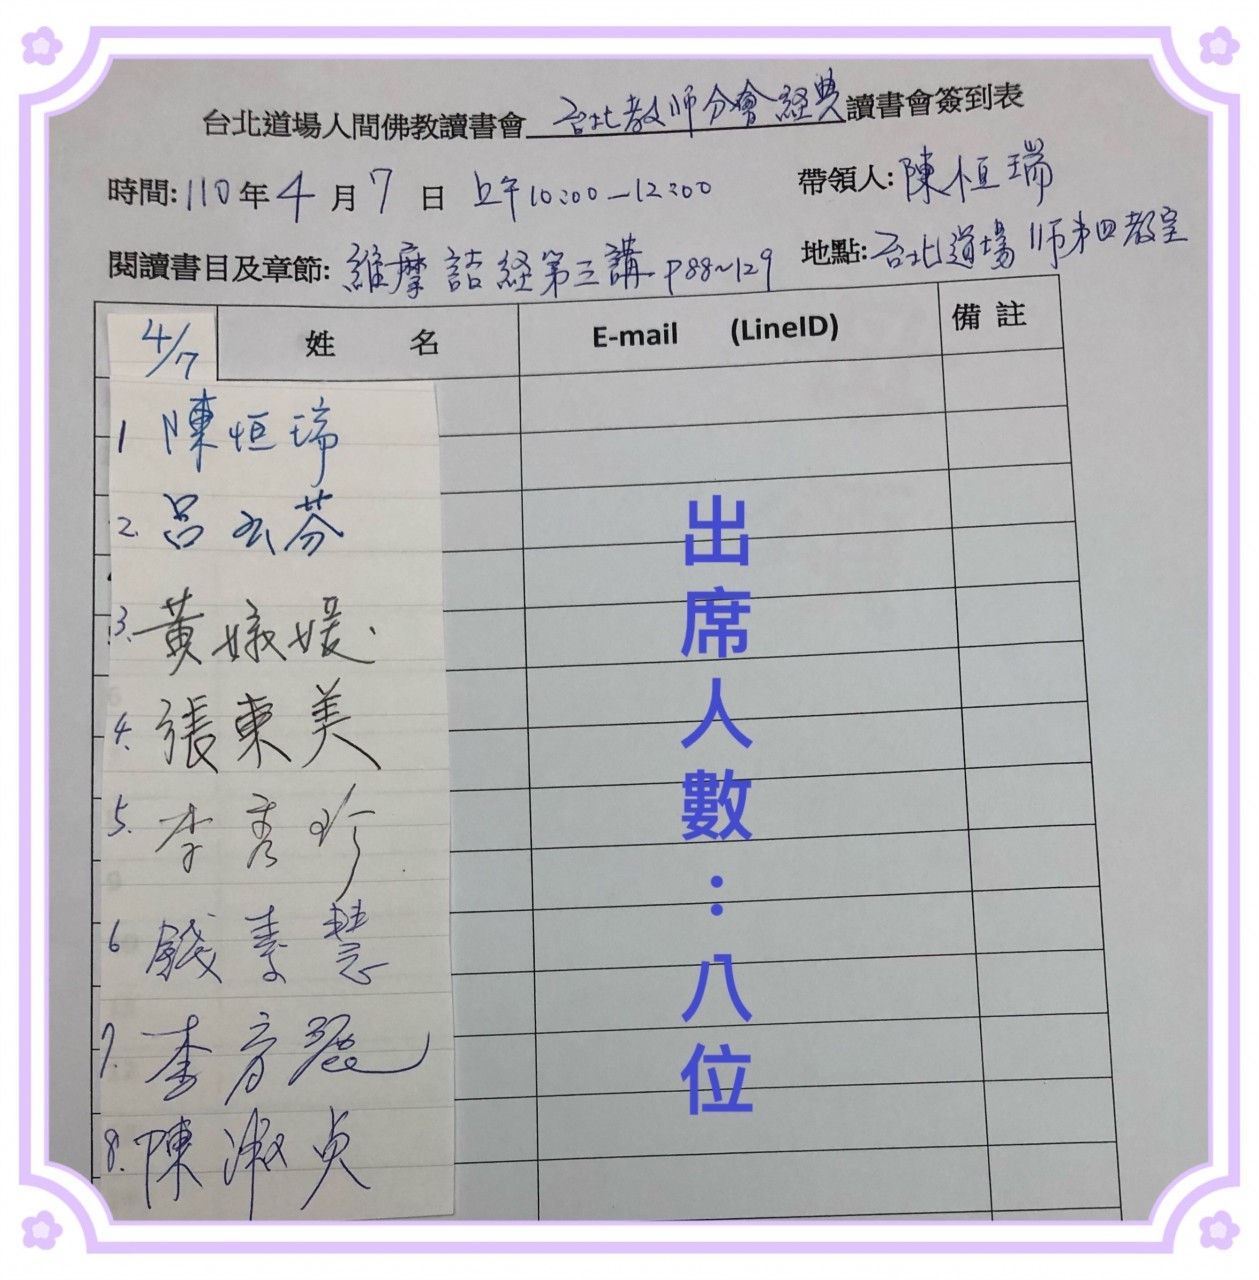 台北道場人間佛教讀書會 台北教師分會経典 讀書會簽到表
時間: 110 年 4 月 7 日 上午10:00-12:00 帶領人: 陳恒瑞
閱讀書目及章節: 維摩詰経第三講 P88~129 地點: 台北道場 11F第四教室
4/7 姓 名 E-mail (LineID) 備 註
1 陳恒瑞
2. 呂玄芬
3. 黃娥媛
4. 張東美
5. 李秀珍
6 錢素慧
7. 李方麗
8. 陳淑貞
出席人數:八位